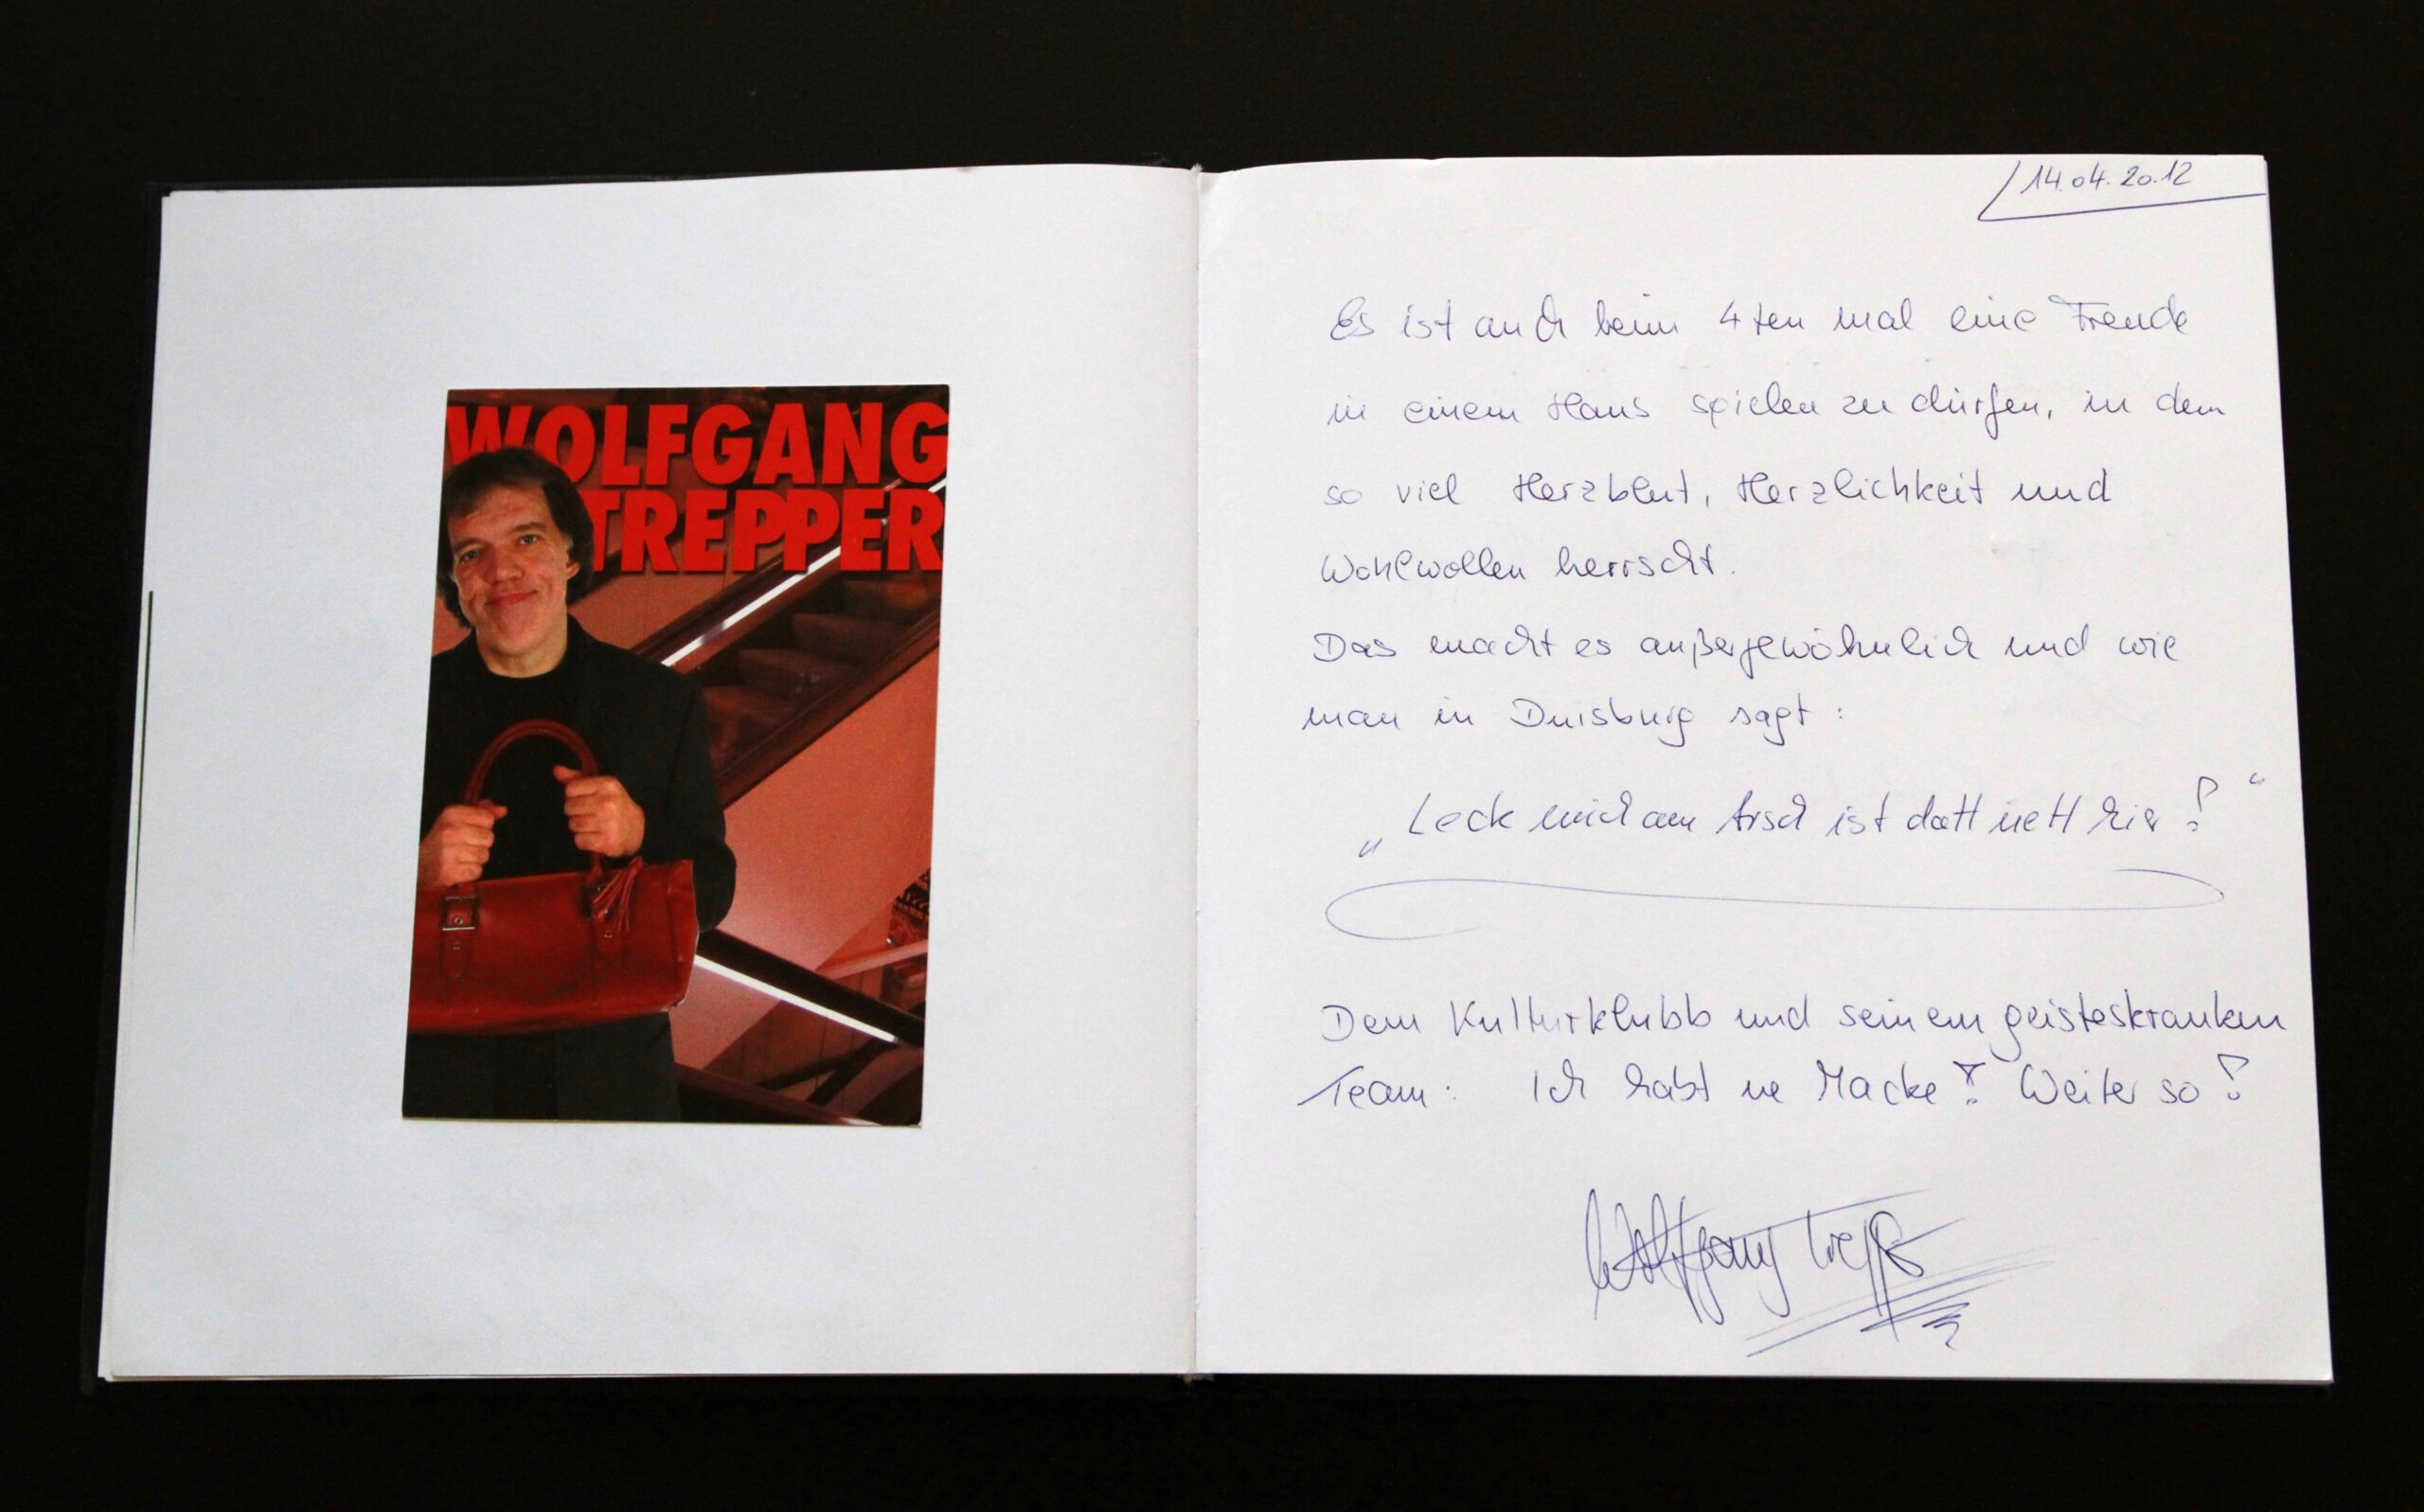 WOLFGANG
TREPPER
14.04.2012
Es ist auch beim 4ten mal eine Freude
in einem Haus spielen zu dürfen, in dem
so viel Herzblut, Herzlichkeit und
Wohlwollen herrscht.
Das macht es außergewöhnlich und wie
man in Duisburg sagt:
„Leck mich am Arsch ist datt nett hier!“
Dem Kulturklubb und seinem geisteskranken
Team: Ich habt ne Macke! Weiter so!
Wolfgang Trepper